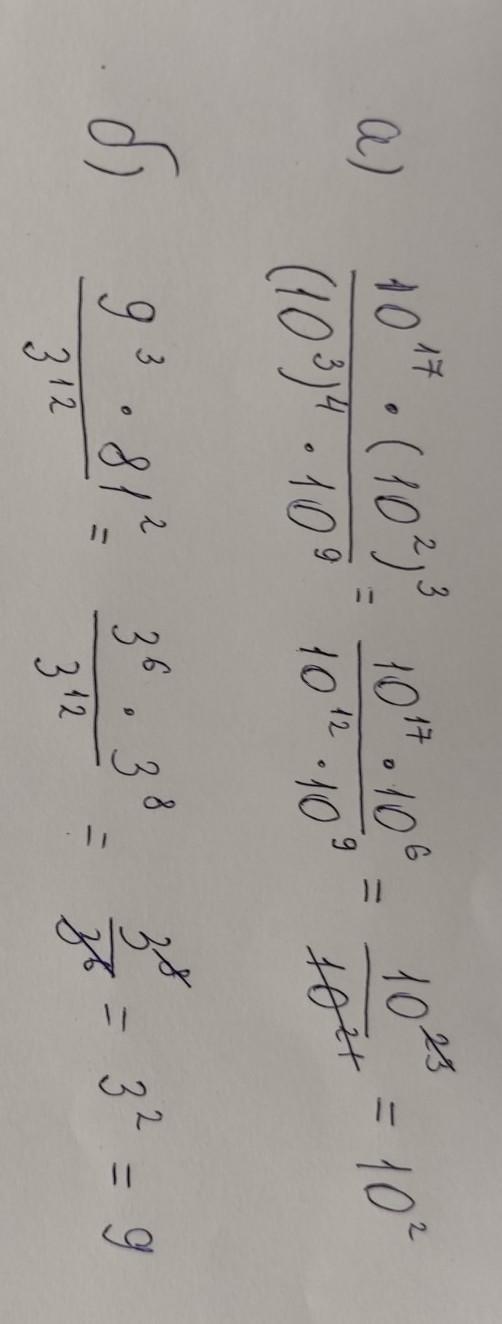 а) 10^17 · (10^2)^3 / (10^3)^4 · 10^9 = 10^17 · 10^6 / 10^12 · 10^9 = 10^23 / 10^21 = 10^2
б) 9^3 · 81^2 / 3^12 = 3^6 · 3^8 / 3^12 = 3^8 / 3^6 = 3^2 = 9